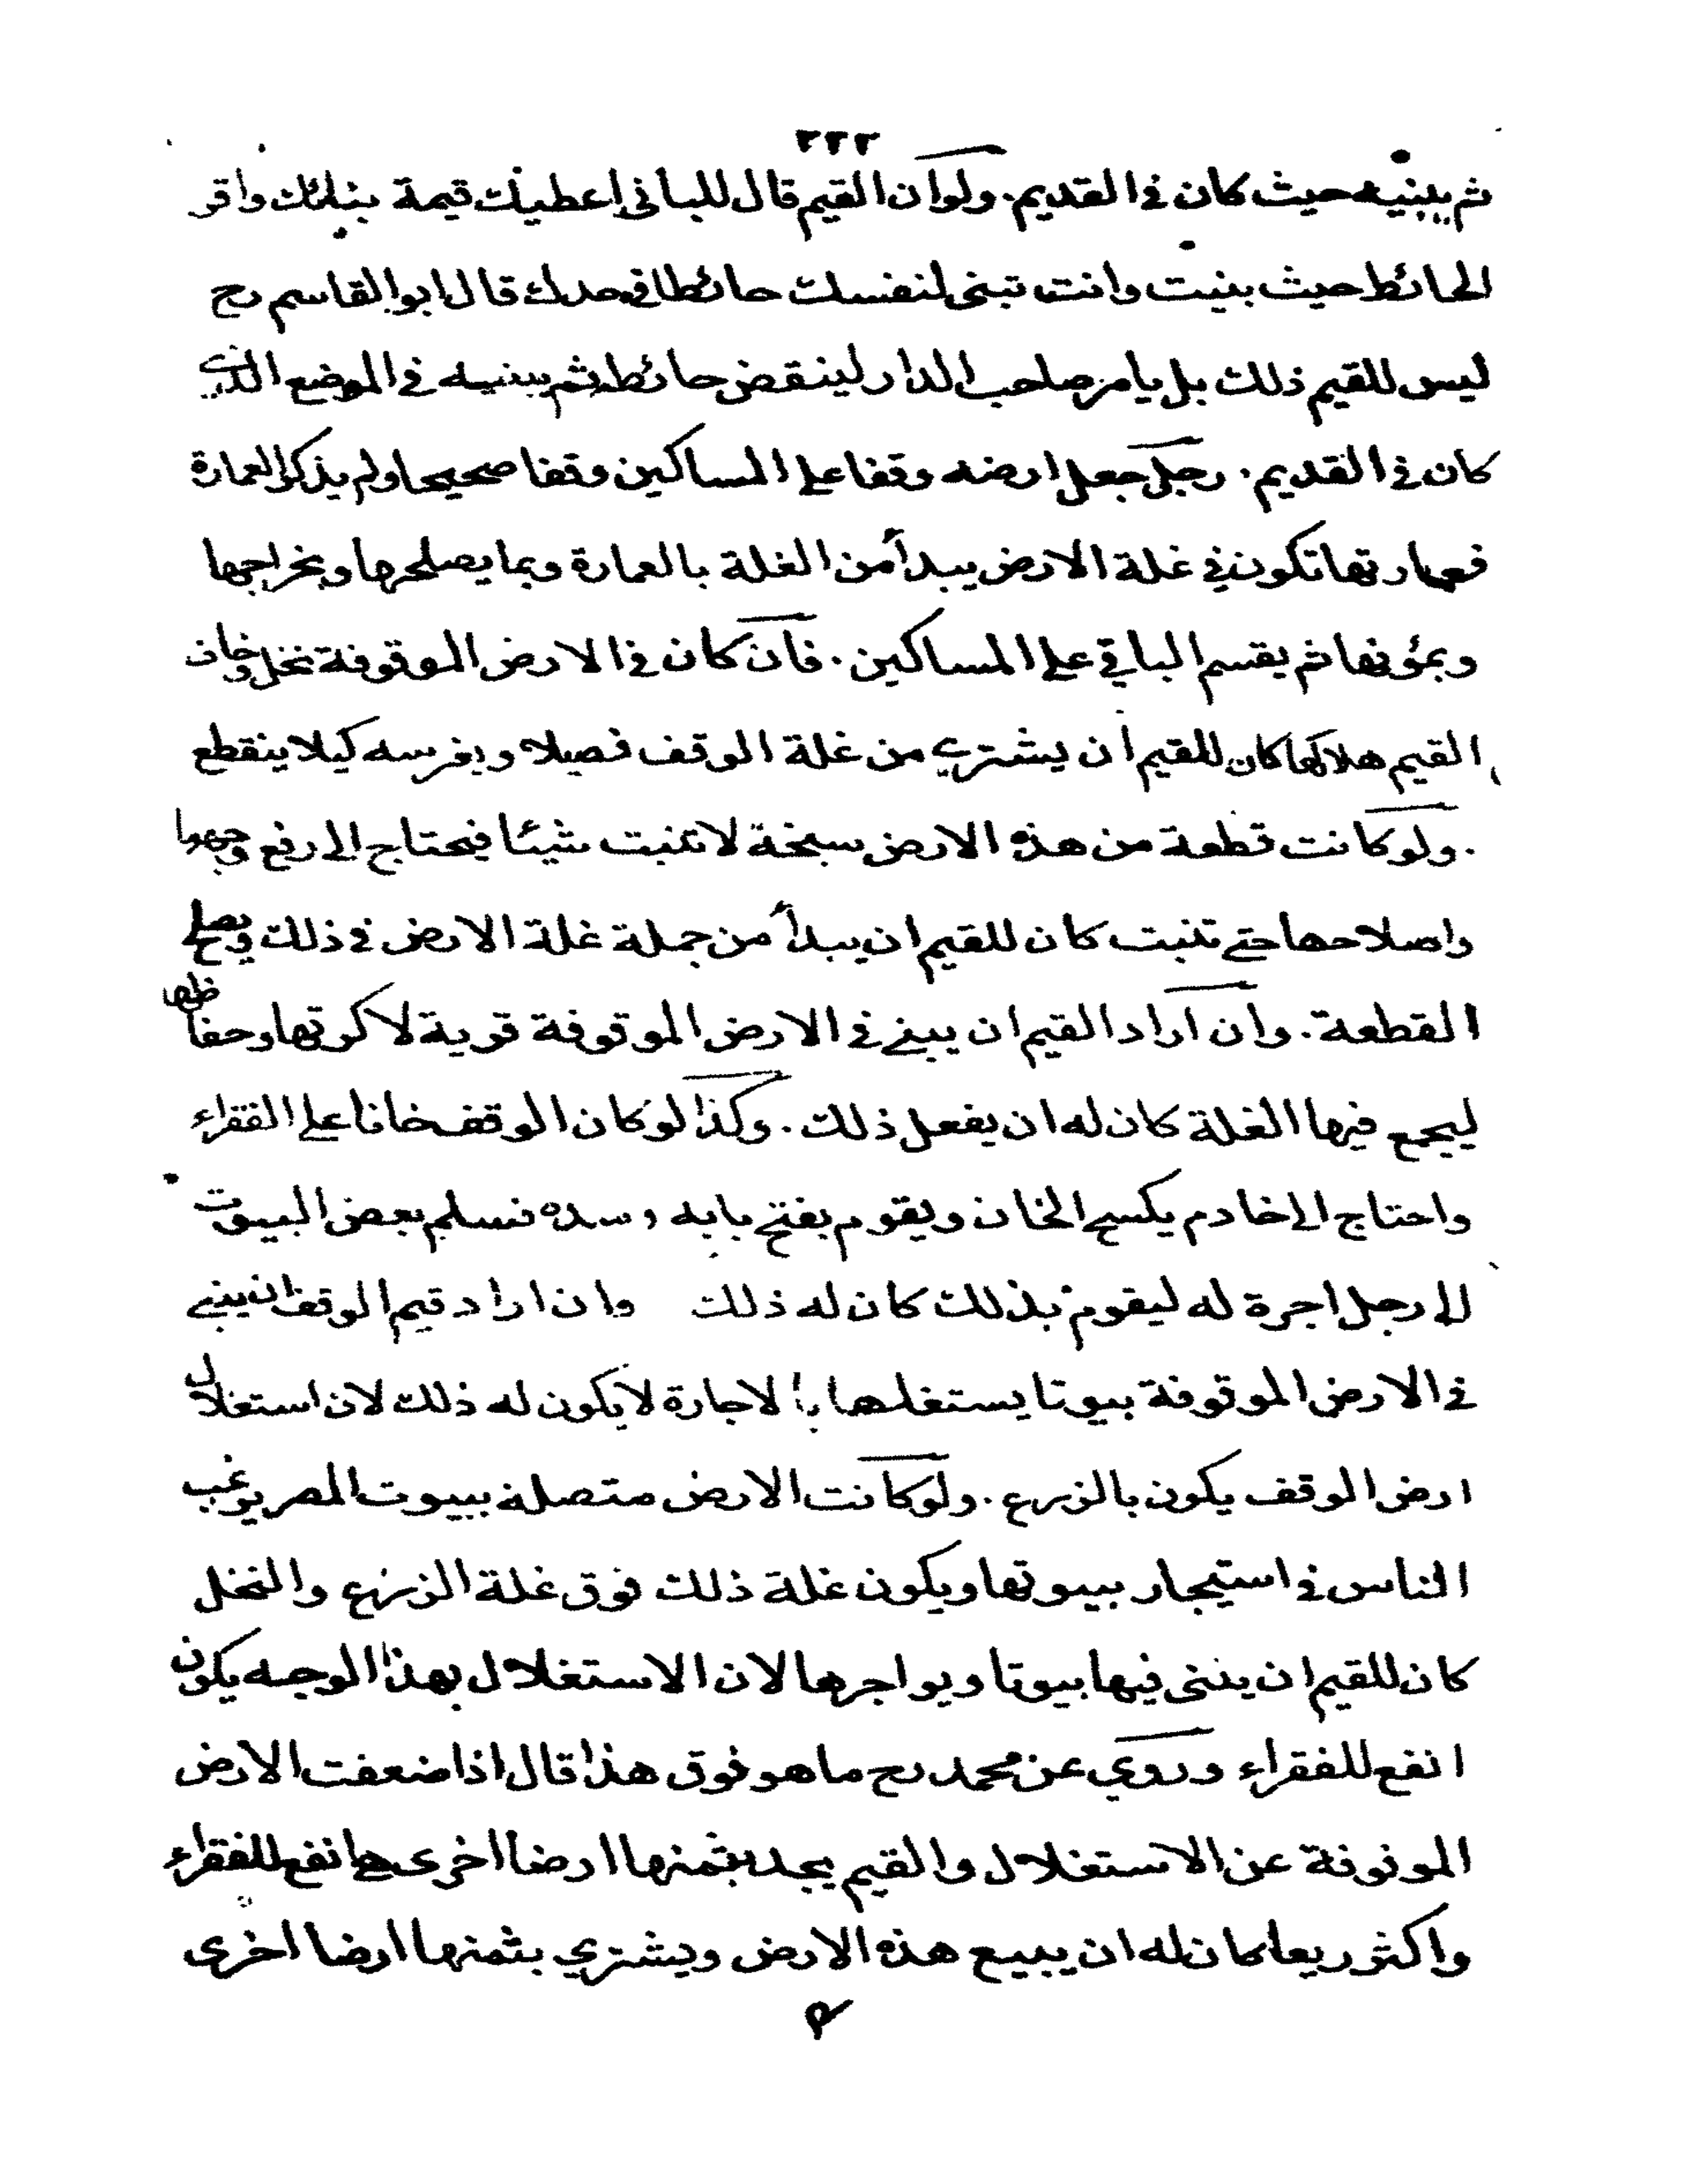 ٢٢٢
ثم يبنيه حيث كان في القديم. ولو ان القيم قال للباني اعطيك قيمة بنائك واقر
الحائط حيث بنيت وانت تبني لنفسك حائطا في حدك قال ابو القاسم رح
ليس للقيم ذلك بل يامر صاحب الدار لينقض حائطه ثم يبنيه في الموضع الذي
كان في القديم. رجل جعل ارضه وقفا على المساكين وقفا صحيحا ولم يذكر العمارة
فعمارتها تكون في غلة الارض يبدأ من الغلة بالعمارة وبما يصلحها وبخراجها
وبمؤنها ثم يقسم الباقي على المساكين. فان كان في الارض الموقوفة نخل وخاف
القيم هلاكها كان للقيم ان يشتري من غلة الوقف فصيلا ويغرسه كيلا ينقطع
. ولو كانت قطعة من هذه الارض سبخة لا تنبت شيئا فيحتاج الى رفع وجهها
واصلاحها حتى تنبت كان للقيم ان يبدأ من جملة غلة الارض في ذلك ويصلح
القطعة. وان اراد القيم ان يبني في الارض الموقوفة قوية لاكرتها وحفاظها
ليجمع فيها الغلة كان له ان يفعل ذلك. وكذا لو كان الوقف خانا على الفقراء
واحتاج الى خادم يكسح الخان ويقوم بفتح بابه وسده فسلم بعض البيوت
الى رجل اجرة له ليقوم بذلك كان له ذلك وان اراد قيم الوقف ان يبني
في الارض الموقوفة بيوتا يستغلها بالاجارة لا يكون له ذلك لان استغلال
ارض الوقف يكون بالزرع. ولو كانت الارض متصلة ببيوت المصر يرغب
الناس في استيجار بيوتها ويكون غلة ذلك فوق غلة الزرع والنخل
كان للقيم ان يبنى فيها بيوتا ويواجرها لان الاستغلال بهذا الوجه يكون
انفع للفقراء وروي عن محمد رح ما هو فوق هذا قال اذا ضعفت الارض
الموقوفة عن الاستغلال والقيم يجد بثمنها ارضا اخرى هي انفع للفقراء
واكثر ريعا كان له ان يبيع هذه الارض ويشتري بثمنها ارضا اخرى